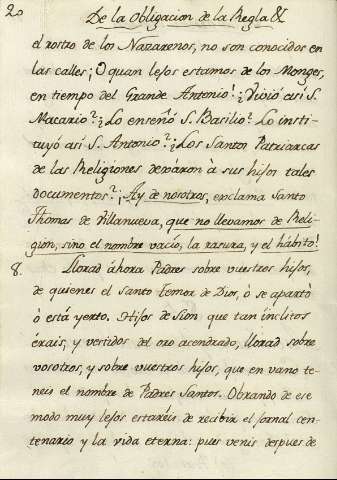 20
De la Obligacion de la Regla &
el rostro de los Nazarenos, no son conocidos en
las calles; ¡O quan lejos estamos de los Monges,
en tiempo del Grande Antonio! ¿Vivió así S.
Macario? ¿Lo enseñó S. Basilio? Lo insti-
tuyó así S. Antonio? ¿Los Santos Patriarcas
de las Religiones dexáron à sus hijos tales
documentos? ¡Ay de nosotros, exclama Santo
Thomas de Villanueva, que no llevamos de Reli-
gion, sino el nombre vacío, la rasura, y el hábito!
8. Llorad áhora Padres sobre vuestros hijos,
de quienes el santo temor de Dios, ò se apartò
ò está yerto. Hijos de Sion que tan ínclitos
érais, y vertidos del oro acendrado, llorad sobre
vosotros, y sobre vuestros hijos, que en vano te-
neis el nombre de Padres Santos. Obrando de ese
modo muy lejos estaréis de recibir el jornal cen-
tenario y la vida eterna: pues venis despues de